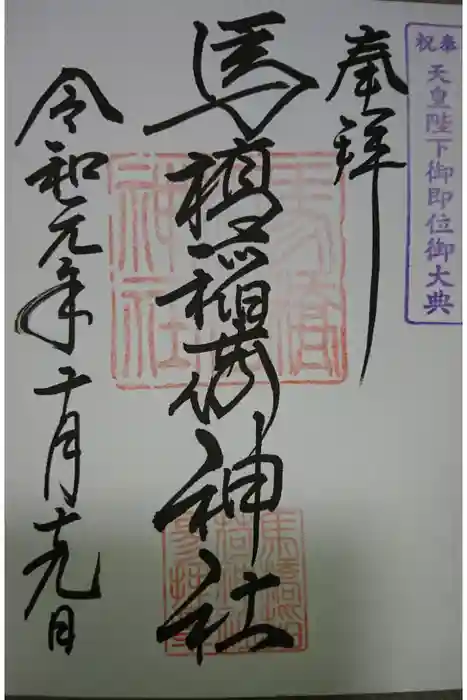 奉祝
天皇陛下御即位御大典
奉拝
馬橋稲荷神社
令和元年十月十九日
馬橋
神社